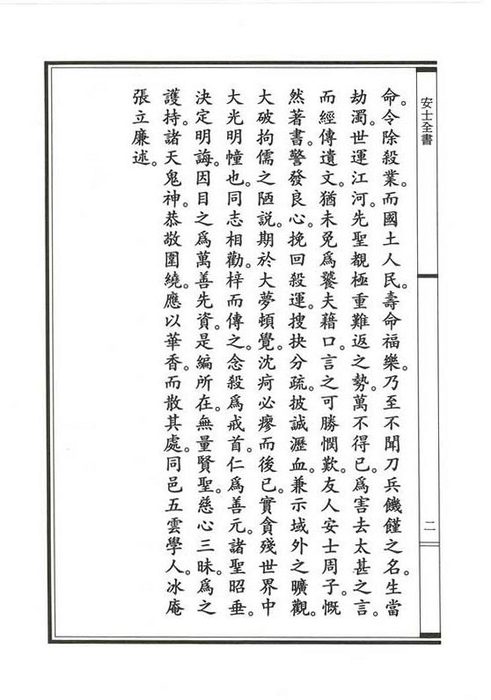 安士全書
二
命。令除殺業。而國土人民。壽命福樂。乃至不聞刀兵饑饉之名。生當
劫濁。世運江河。先聖覩極重難返之勢。萬不得已。爲害去太甚之言。
而經傳遺文。猶未免爲饕夫藉口。言之可勝憫歎。友人安士周子。慨
然著書。警發良心。挽回殺運。搜抉分疏。披誠瀝血。兼示域外之曠觀。
大破拘儒之陋說。期於大夢頓覺。沈疴必瘳而後已。實貪殘世界中
大光明幢也。同志相勸。梓而傳之。念殺爲戒首。仁爲善元。諸聖昭垂。
決定明誨。因目之爲萬善先資。是編所在。無量賢聖。慈心三昧。爲之
護持。諸天鬼神。恭敬圍繞。應以華香。而散其處。同邑五雲學人。冰庵
張立廉述。